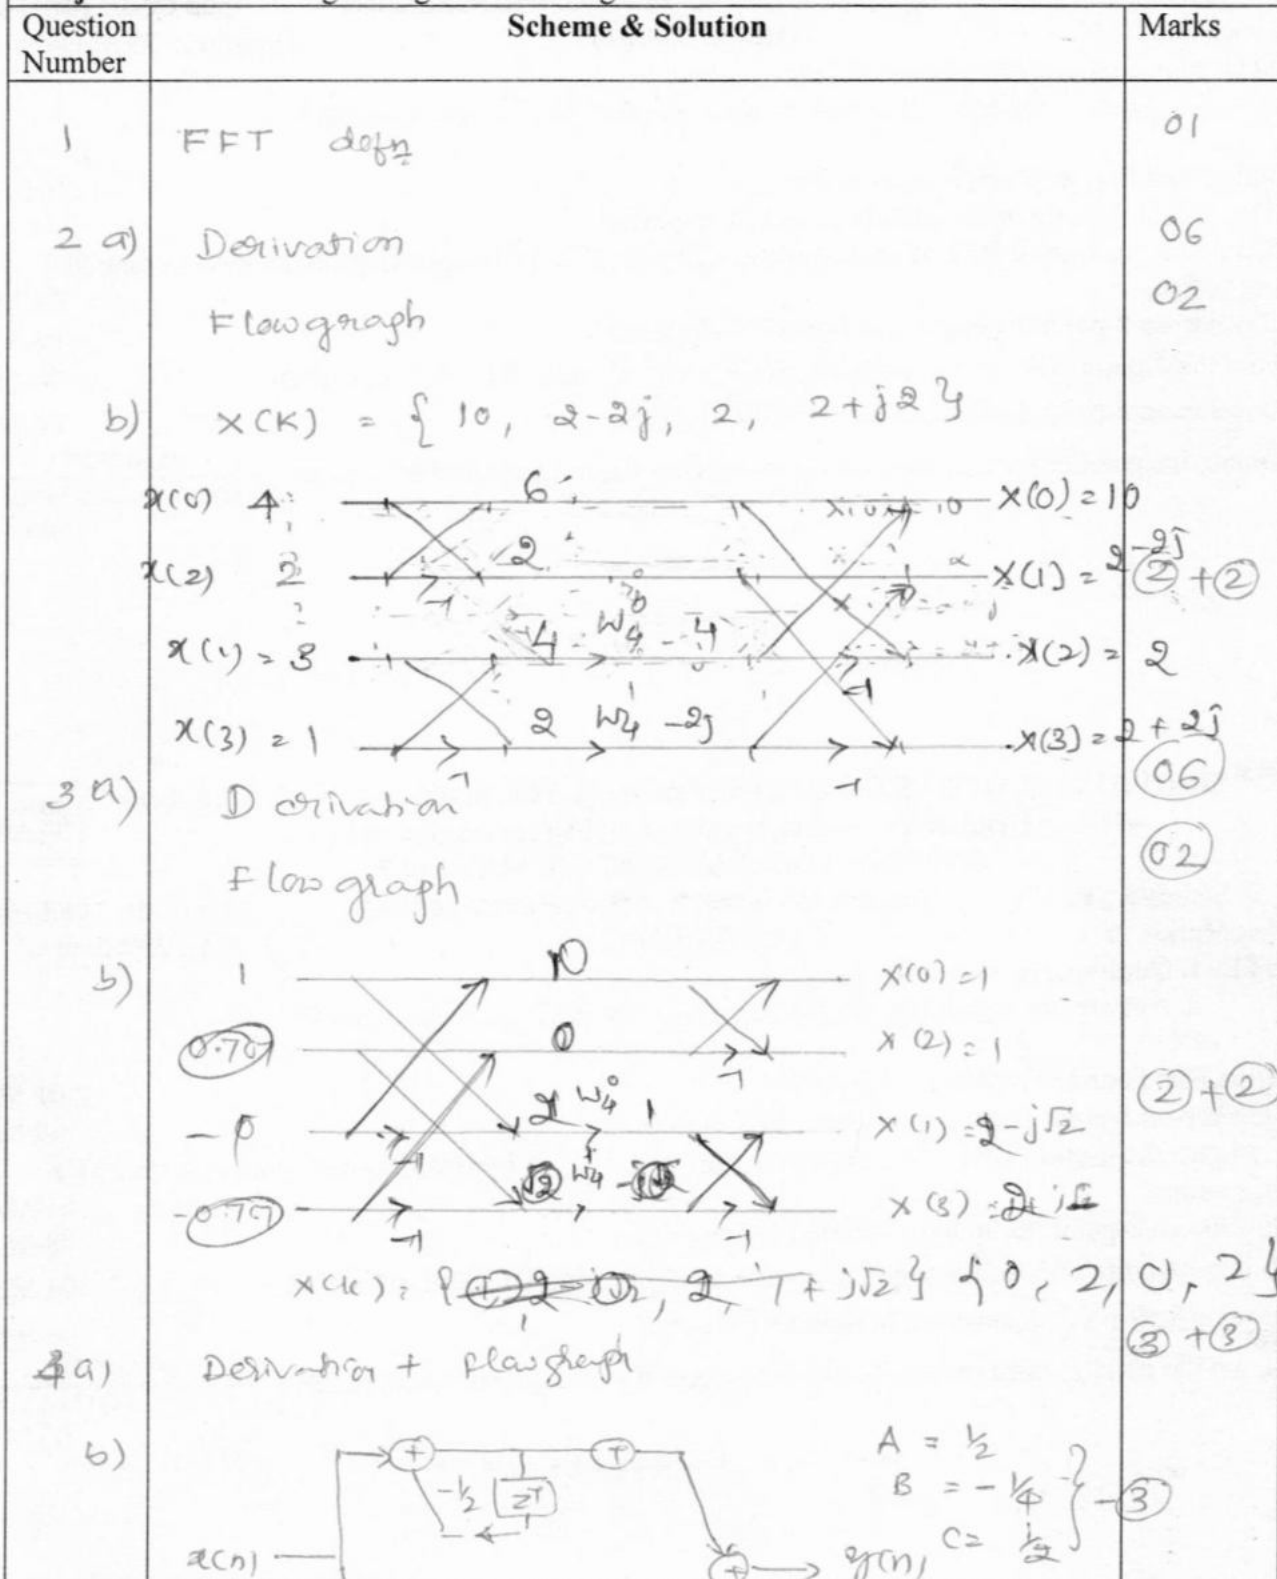 Question Number Scheme & Solution Marks
1 FFT defn 01
2 a) Derivation 06
Flowgraph 02
b) X(K) = { 10, 2-2j, 2, 2+j2 }
x(0) 4 6 X(0) = 10
x(2) 2 -1 2 X(1) = 2-2j ② + ②
x(1) = 3 4 W4^0 4 -1 X(2) = 2
x(3) = 1 -1 2 W4^1 -2j -1 X(3) = 2 + 2j
3 a) Derivation 06
Flow graph 02
b) 1 0 X(0) = 1
0.707 0 -1 X(2) = 1
- 0 -1 2 W4^0 1 X(1) = 2-j√2 ② + ②
-0.707 -1 √2 W4 -1 X(3) =
X(k) = , 2, 1 + j√2 } { 0, 2, 0, 2 }
4 a) Derivation + flowgraph ③ + ③
b) + + A = 1/2
-1/2 B = - 1/4 - ③
C =
x(n) + y(n)